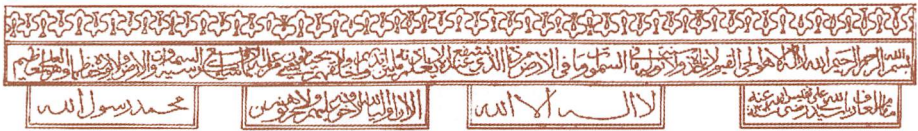 بسم الله الرحمن الرحيم الله لا اله الا هو الحي القيوم لا تأخذه سنة ولا نوم له ما في السموات وما في الارض من ذا الذي يشفع عنده الا باذنه يعلم ما بين ايديهم وما خلفهم ولا يحيطون بشيء من علمه الا بما شاء وسع كرسيه السموات والارض ولا يؤده حفظهما وهو العلي العظيم
لا اله الا الله
الا ان اولياء الله لا خوف عليهم ولا هم يحزنون
محمد رسول الله